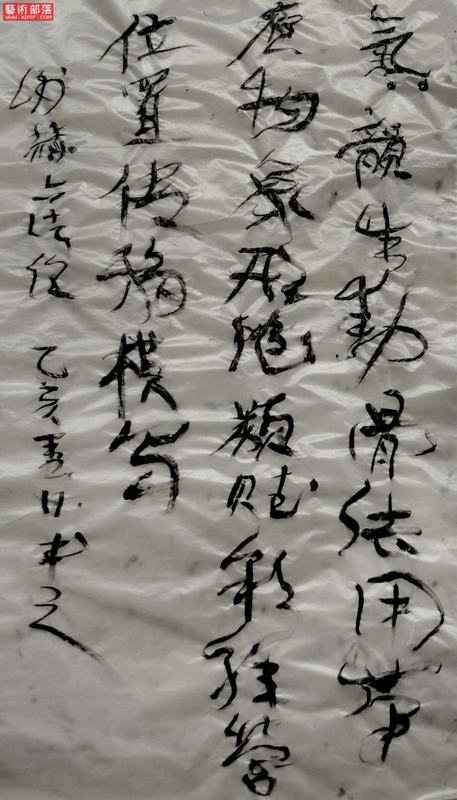 藝術部落
www.XDSF.com
氣韻生動骨法用筆
應物象形隨類賦彩經營
位置傳移模寫
謝赫六法 乙亥夏日书之